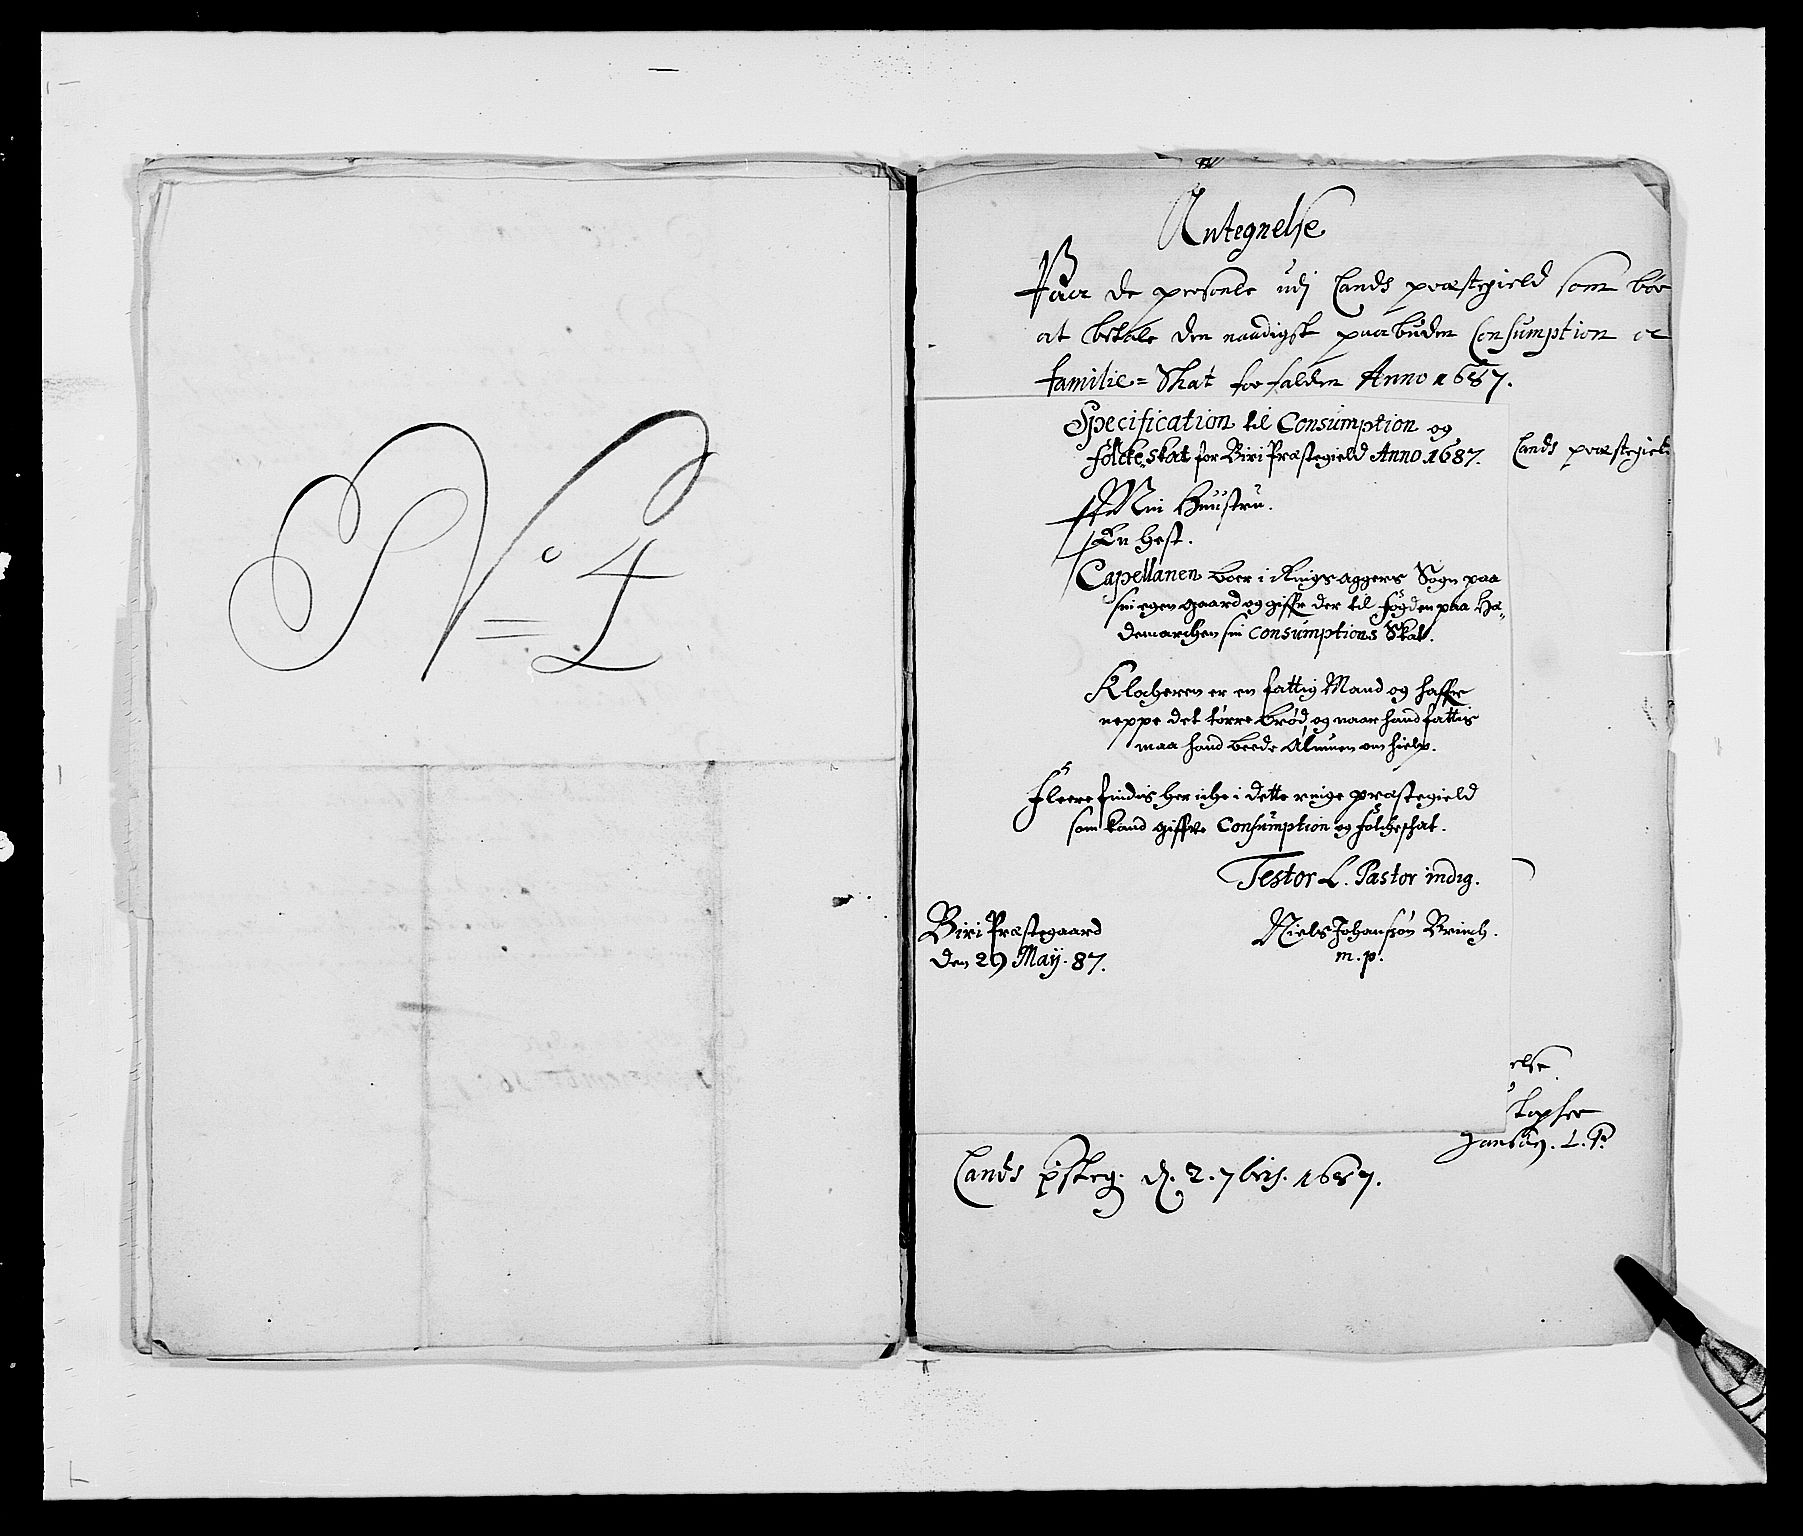 No 4
Antegnelse
Paa de persohle udj Lands præstegield som bör
at betale den naadigst paabuden Consumption oc
familie= Skat forfalden Anno 1687.
Specification til Consumption og
folcke skat for Biri Præstegield Anno 1687.
Lands præstegield
Min Huustru.
En Hest.
Capellanen boer i Ringsaggers Sogn paa
sin egen gaard og giffr der til fogden paa He-
demarchen sin Consumptions Skat.
Klocheren er en fattig Mand og haffr
neppe det törre bröd, og naar hand fattis
maa hand beede Almuen om hielp.
Fleere findis her iche i dette ringe præstegield
som kand giffve Consumption og folcheschat.
Testor L. Pastor indig.
Biri Præstegaard
den 29 Maij. 87.
Niels Johanssön Brinch.
m. p.
else
topher
Jansen. L. P.
Lands psteg. d. 2. 7bris. 1687.